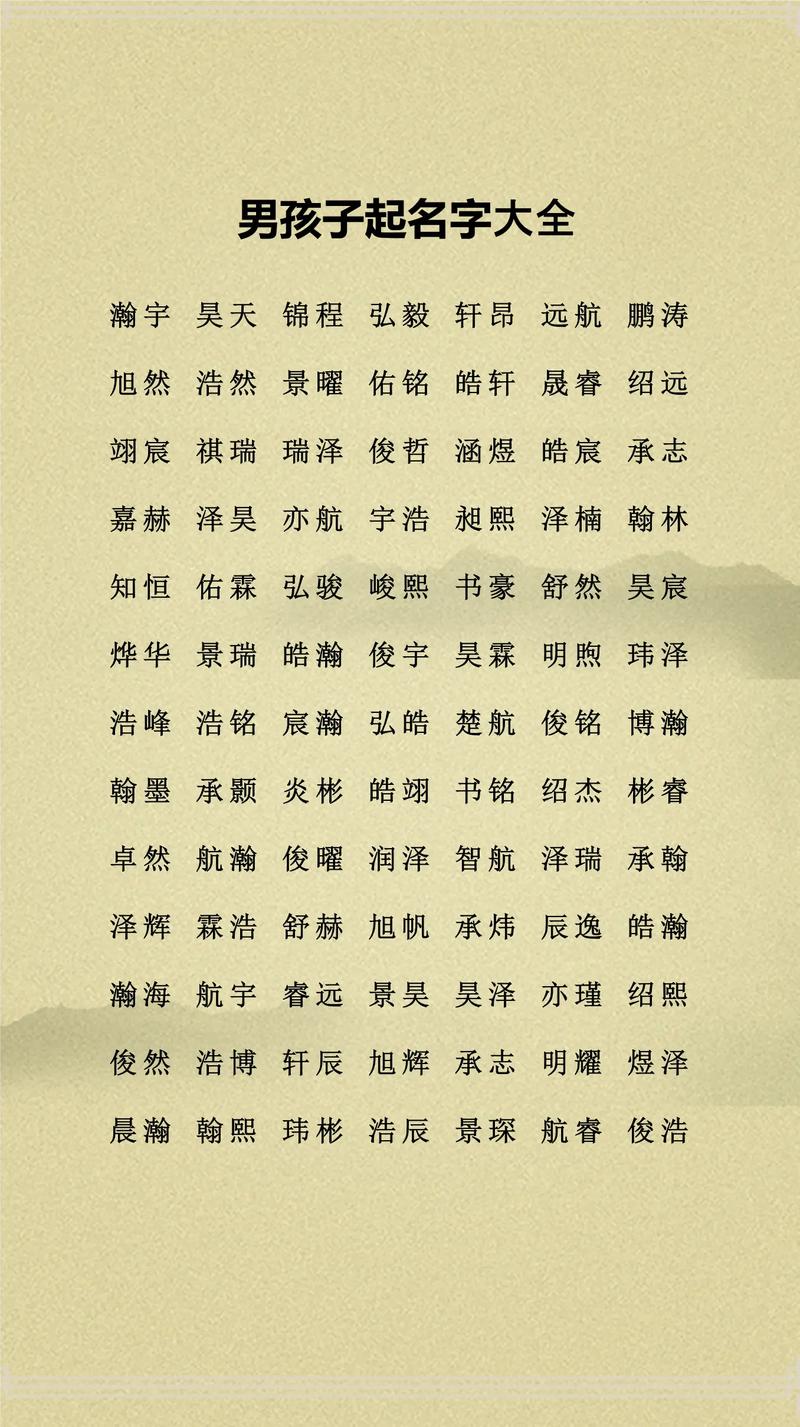 男孩子起名字大全
瀚宇 昊天 锦程 弘毅 轩昂 远航 鹏涛
旭然 浩然 景曜 佑铭 皓轩 晟睿 绍远
翊宸 祺瑞 瑞泽 俊哲 涵煜 皓宸 承志
嘉赫 泽昊 亦航 宇浩 昶熙 泽楠 翰林
知恒 佑霖 弘骏 峻熙 书豪 舒然 昊宸
烨华 景瑞 皓瀚 俊宇 昊霖 明煦 玮泽
浩峰 浩铭 宸瀚 弘皓 楚航 俊铭 博瀚
翰墨 承颢 炎彬 皓翊 书铭 绍杰 彬睿
卓然 航瀚 俊曜 润泽 智航 泽瑞 承翰
泽辉 霖浩 舒赫 旭帆 承炜 辰逸 皓瀚
瀚海 航宇 睿远 景昊 昊泽 亦瑾 绍熙
俊然 浩博 轩辰 旭辉 承志 明耀 煜泽
晨瀚 翰熙 玮彬 浩辰 景琛 航睿 俊浩